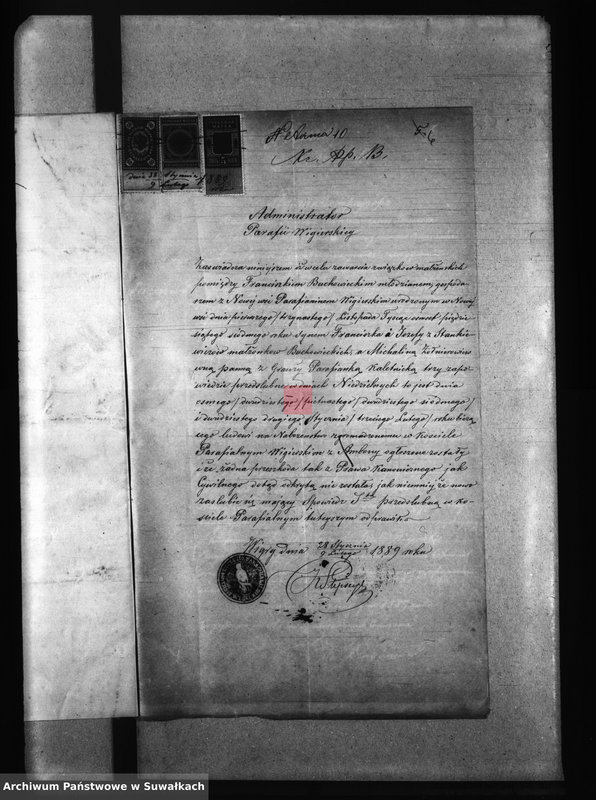 10
Administrator
Parafii Wigierskiej
Zaświadcza niniejszem iż w celu zawarcia związków małżeńskich
pomiędzy Franciszkiem Buchowieckim młodzianem, gospoda-
rzem z Nowej wsi Parafianinem Wigierskim urodzonym w Nowej
wsi dnia pierwszego / trzynastego / Listopada Tysiąc ośmset pięćdzie-
siątego siódmego roku synem Franciszka i Józefy z Stankie-
wiczów małżonków Buchowieckich, a Michaliną Żółnierowi-
wną panną z Parafianką Kaletnicką trzy zapo-
wiedzie przedślubne w dniach Niedzielnych to jest dnia
ósmego / dwudziestego / piętnastego / dwudziestego siódmego /
i dwudziestego drugiego Stycznia / trzeciego Lutego / roku bieżą-
cego ludowi na Nabożeństwo zgromadzonemu w Kościele
Parafialnym Wigierskim z Ambony ogłoszone zostały
i że żadna przeszkoda tak z Prawa Kanonicznego jak
Cywilnego dotąd odkrytą nie została; jak niemniej że nowo
zaślubić się mający Spowiedź Stą przedślubną w Ko-
ściele Parafialnym tutejszym odprawili
Wigry dnia 28 Stycznia / 9 Lutego 1889 roku
Archiwum Państwowe w Suwałkach